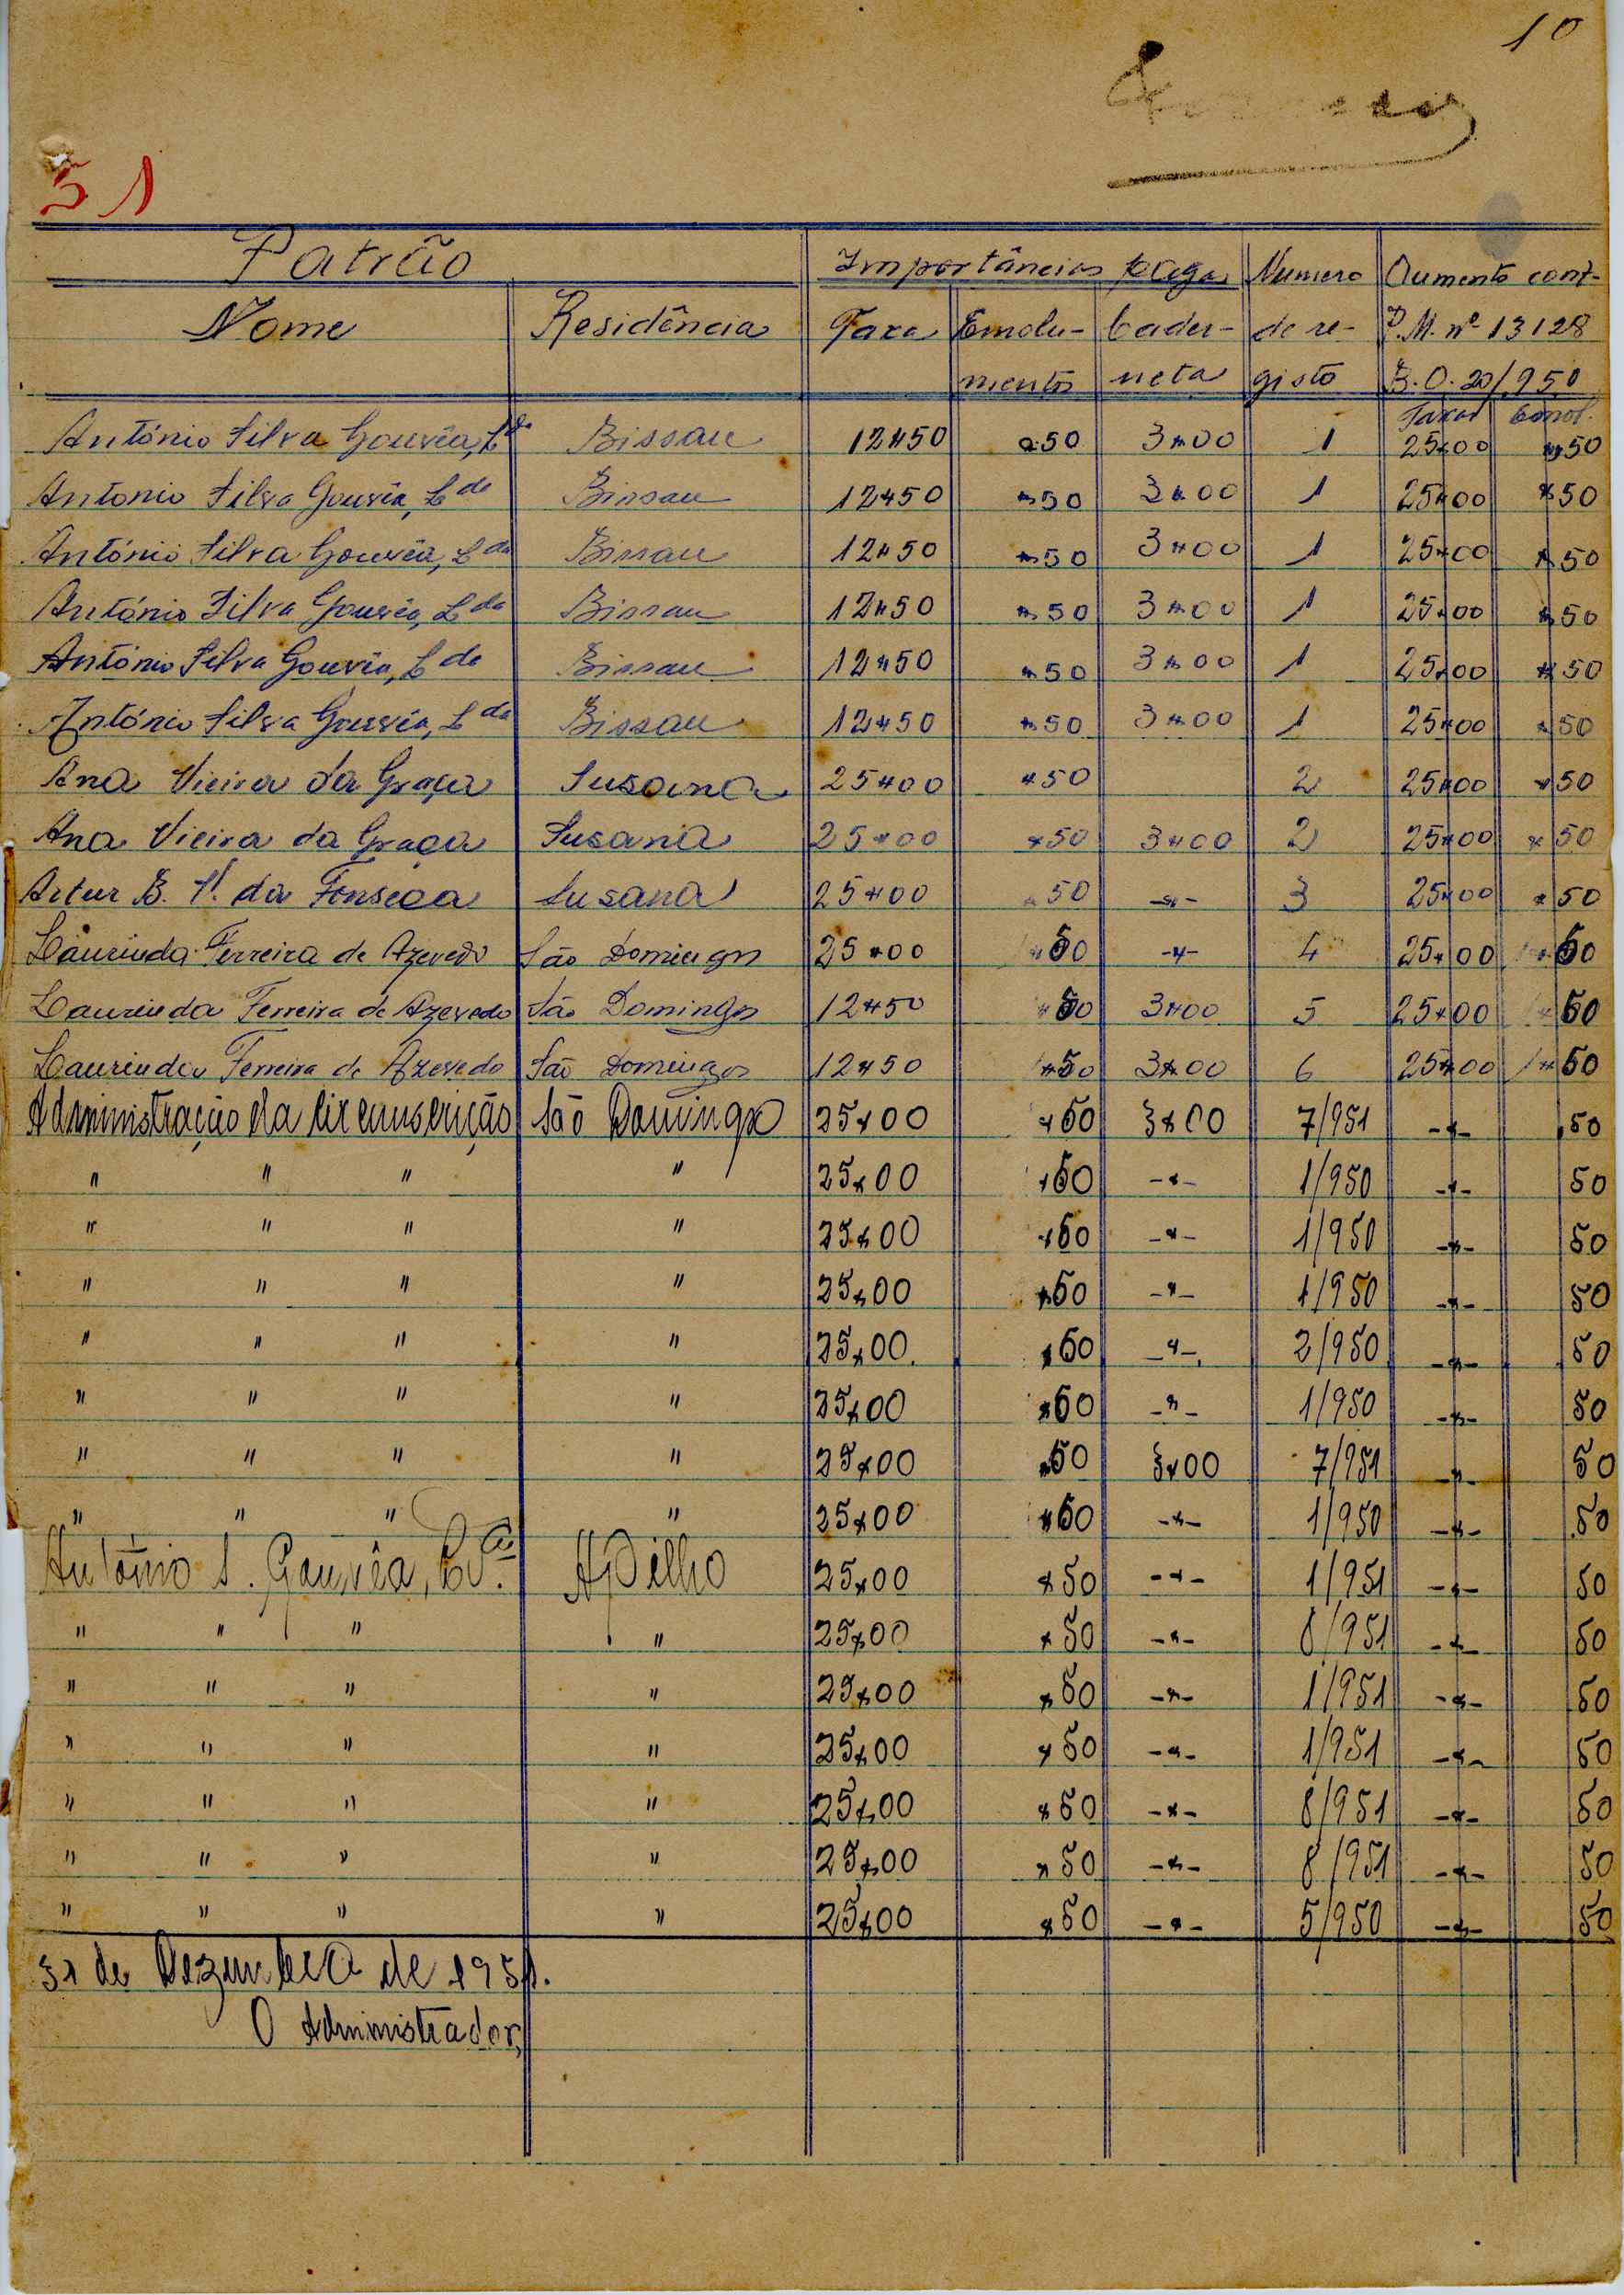 10
51
Patrão Importâncias pagas Numero Aumento conf-
Nome Residência Taxa Emolu- Cader- de re- P.M. nº 13128
mentos neta gisto B.O. 20/950
Taxas Emol.
António Silva Gouvêa, Lda Bissau 12$50 $50 3$00 1 25$00 $50
Antonio Silva Gouvêa, Lda Bissau 12$50 $50 3$00 1 25$00 $50
António Silva Gouvêa, Lda Bissau 12$50 $50 3$00 1 25$00 $50
António Silva Gouvêa, Lda Bissau 12$50 $50 3$00 1 25$00 $50
António Silva Gouvêa, Lda Bissau 12$50 $50 3$00 1 25$00 $50
António Silva Gouvêa, Lda Bissau 12$50 $50 3$00 1 25$00 $50
Ana Vieira da Graça Susana 25$00 $50 2 25$00 $50
Ana Vieira da Graça Susana 25$00 $50 3$00 2 25$00 $50
Artur B. V. da Fonseca Susana 25$00 $50 -$- 3 25$00 $50
Laurinda Ferreira de Azevedo São Domingos 25$00 $50 -$- 4 25$00 $50
Laurinda Ferreira de Azevedo São Domingos 12$50 $50 3$00 5 25$00 $50
Laurinda Ferreira de Azevedo São Domingos 12$50 $50 3$00 6 25$00 $50
Administração da Circunscrição São Domingos 25$00 $50 3$00 7/951 -$- $50
" " " " 25$00 $50 -$- 1/950 -$- 50
" " " " 25$00 $50 -$- 1/950 -$- 50
" " " " 25$00 $50 -$- 1/950 -$- 50
" " " " 25$00 $50 -$- 2/950 -$- 50
" " " " 25$00 $50 -$- 1/950 -$- 50
" " " " 25$00 $50 3$00 7/951 -$- 50
" " " " 25$00 $50 -$- 1/950 -$- 50
António S. Gouvêa, Lda. Apilho 25$00 $50 -$- 1/951 -$- 50
" " " " 25$00 $50 -$- 8/951 -$- 50
" " " " 25$00 $50 -$- 1/951 -$- 50
" " " " 25$00 $50 -$- 1/951 -$- 50
" " " " 25$00 $50 -$- 8/951 -$- 50
" " " " 25$00 $50 -$- 8/951 -$- 50
" " " " 25$00 $50 -$- 5/950 -$- 50
31 de Dezembro de 1951.
O Administrador,